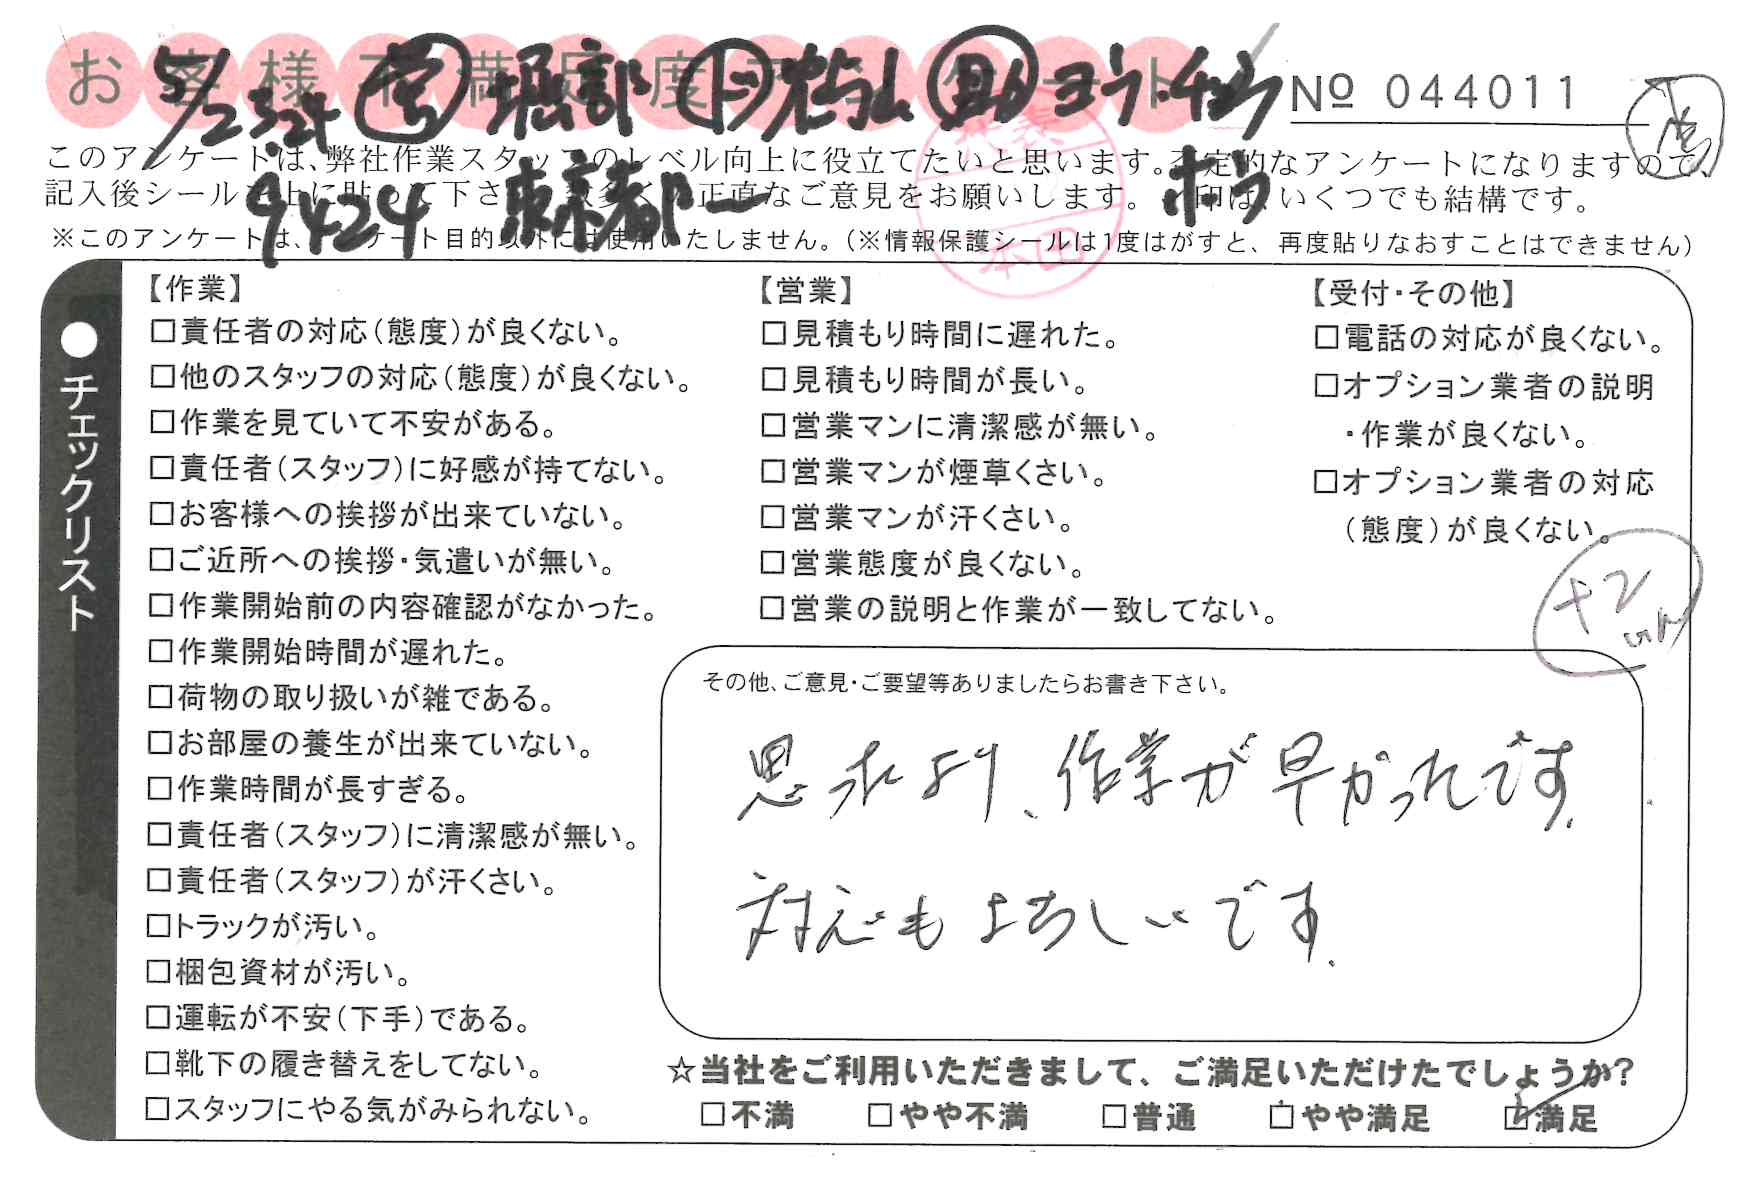 お客様不満足度アンケート
No 044011
5/23.24 堀部
9424 東京都
このアンケートは、弊社作業スタッフのレベル向上に役立てたいと思います。否定的なアンケートになりますので、
記入後シールを上に貼って下さい。数多くの正直なご意見をお願いします。 印は、いくつでも結構です。
※このアンケートは、アンケート目的以外には使用いたしません。(※情報保護シールは1度はがすと、再度貼りなおすことはできません)
本田
●チェックリスト
【作業】
□責任者の対応(態度)が良くない。
□他のスタッフの対応(態度)が良くない。
□作業を見ていて不安がある。
□責任者(スタッフ)に好感が持てない。
□お客様への挨拶が出来ていない。
□ご近所への挨拶・気遣いが無い。
□作業開始前の内容確認がなかった。
□作業開始時間が遅れた。
□荷物の取り扱いが雑である。
□お部屋の養生が出来ていない。
□作業時間が長すぎる。
□責任者(スタッフ)に清潔感が無い。
□責任者(スタッフ)が汗くさい。
□トラックが汚い。
□梱包資材が汚い。
□運転が不安(下手)である。
□靴下の履き替えをしてない。
□スタッフにやる気がみられない。
【営業】
□見積もり時間に遅れた。
□見積もり時間が長い。
□営業マンに清潔感が無い。
□営業マンが煙草くさい。
□営業マンが汗くさい。
□営業態度が良くない。
□営業の説明と作業が一致してない。
【受付・その他】
□電話の対応が良くない。
□オプション業者の説明
・作業が良くない。
□オプション業者の対応
(態度)が良くない。
+2
その他、ご意見・ご要望等ありましたらお書き下さい。
思ったより、作業が早かったです.
対応もよろしいです.
☆当社をご利用いただきまして、ご満足いただけたでしょうか?
□不満 □やや不満 □普通 □やや満足 □満足